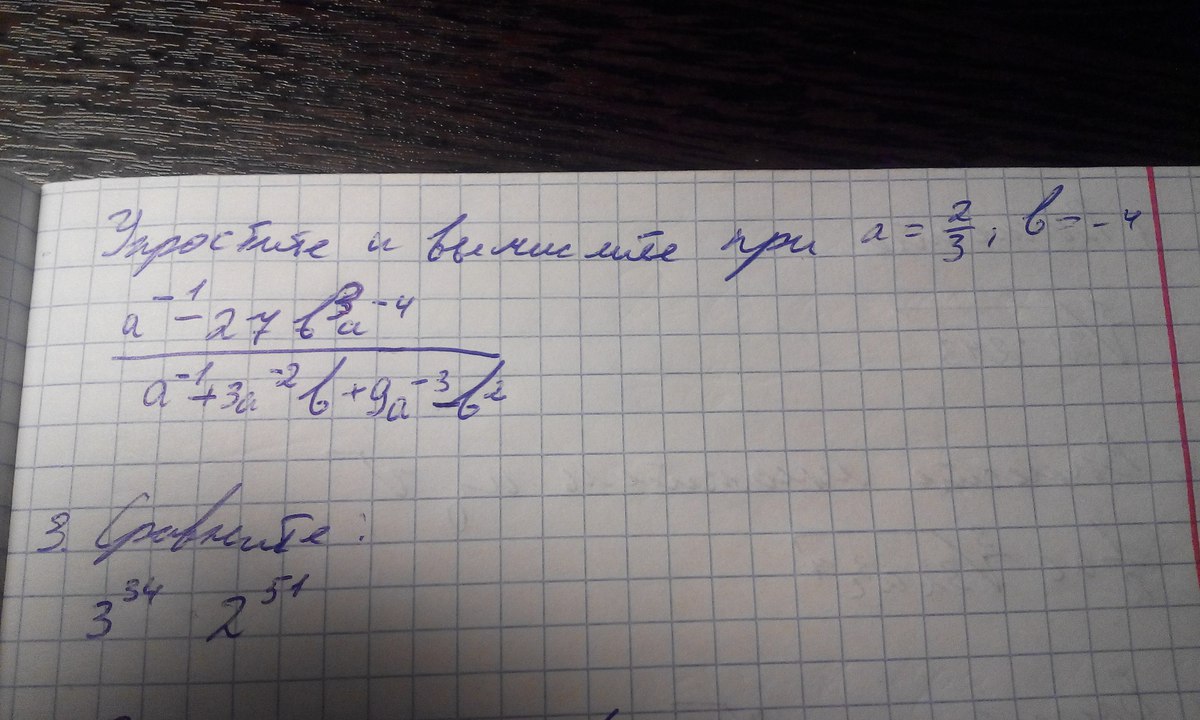 Упростите и вычислите при a = 2/3; b = -4
a⁻¹ - 27 b³a⁻⁴
a⁻¹ + 3a⁻²b + 9a⁻³b²
3. Сравните:
3³⁴ 2⁵¹